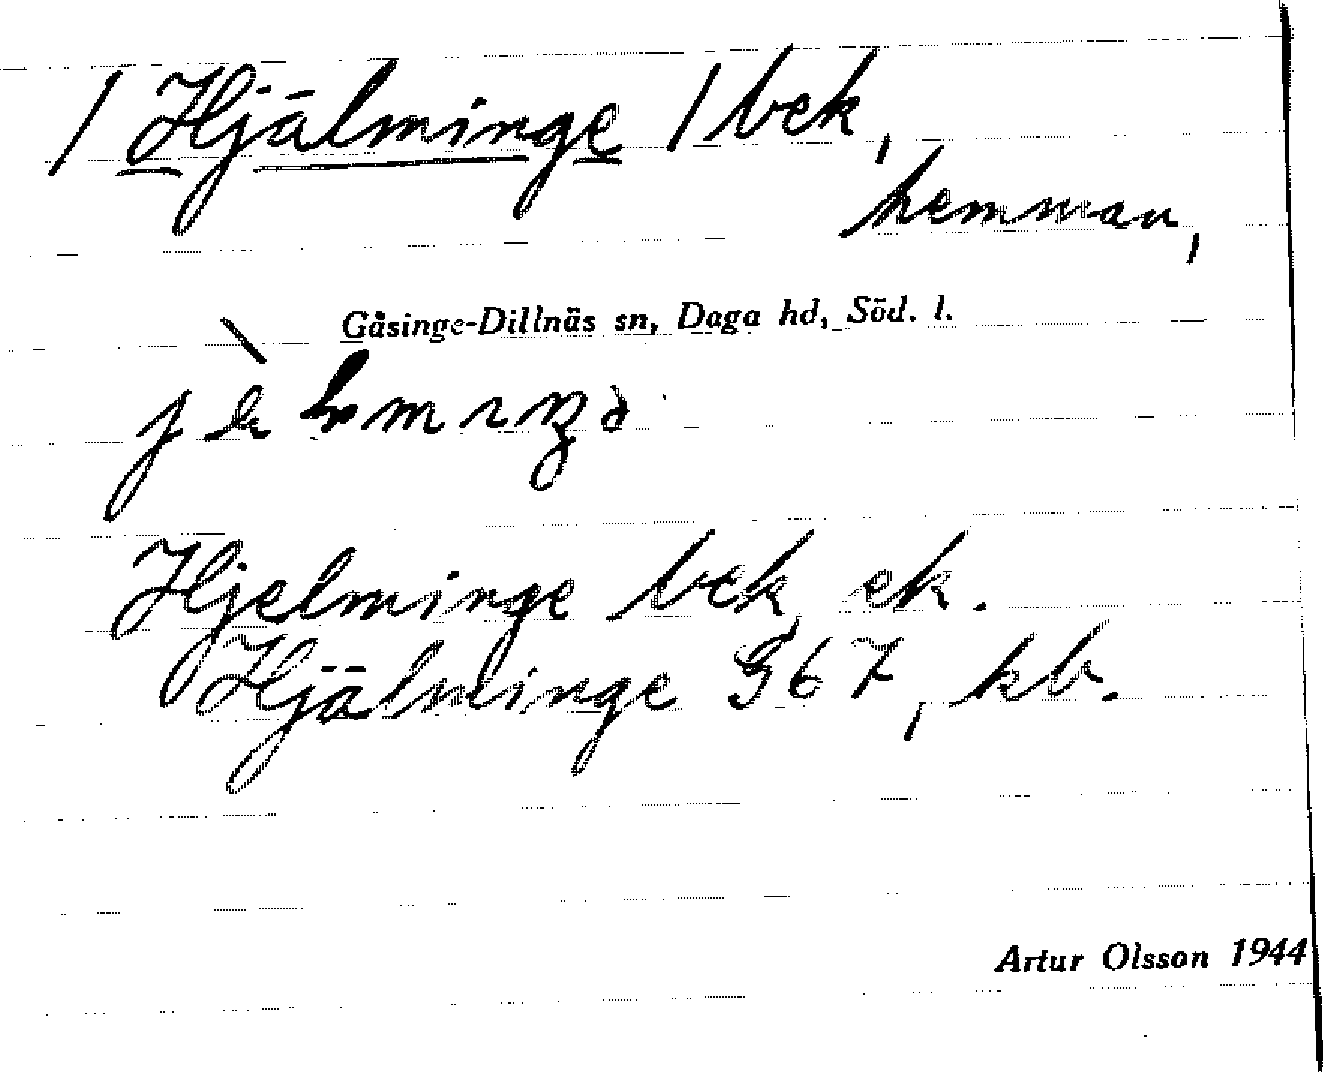 / Hjälminge / bek,
hemman,
Gåsinge-Dillnäs sn, Daga hd, Söd. l.
Hjelminge bek ek.
Hjälminge G67, kb.
Artur Olsson 1944